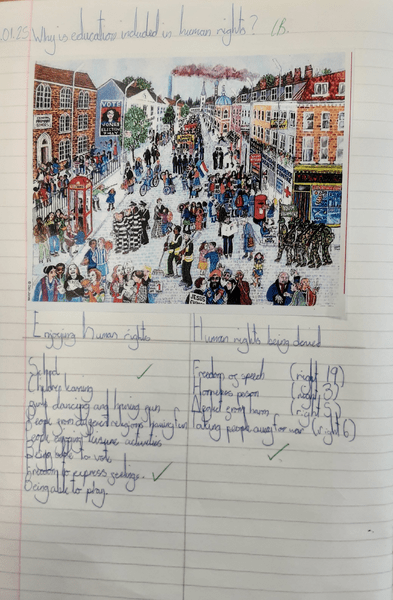 .01.25 Why is education included in human rights?
VOTE
JONES
Enjoying human rights
Human rights being denied
School
Children learning
dancing and having fun
People from different religions having fun
People enjoying leisure activities
Being able to vote
Freedom to express feelings.
Being able to play.
Freedom of speech (right 19)
Homeless person (right 3)
from harm (right 5)
Taking people away for war (right 6)